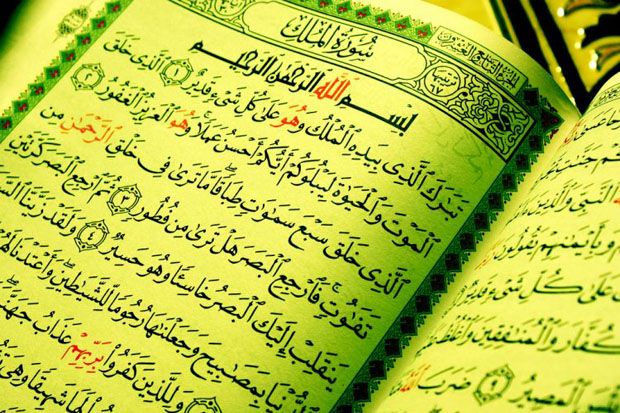 سُورَةُ الْمُلْكِ
بِسْمِ اللَّهِ الرَّحْمَٰنِ الرَّحِيمِ
تَبَٰرَكَ ٱلَّذِى بِيَدِهِ ٱلْمُلْكُ وَهُوَ عَلَىٰ كُلِّ شَىْءٍ قَدِيرٌ ١ ٱلَّذِى خَلَقَ
ٱلْمَوْتَ وَٱلْحَيَوٰةَ لِيَبْلُوَكُمْ أَيُّكُمْ أَحْسَنُ عَمَلًا ۚ وَهُوَ ٱلْعَزِيزُ ٱلْغَفُورُ ٢
ٱلَّذِى خَلَقَ سَبْعَ سَمَٰوَٰتٍ طِبَاقًا ۖ مَّا تَرَىٰ فِى خَلْقِ ٱلرَّحْمَٰنِ مِن
تَفَٰوُتٍ ۖ فَٱرْجِعِ ٱلْبَصَرَ هَلْ تَرَىٰ مِن فُطُورٍ ٣ ثُمَّ ٱرْجِعِ ٱلْبَصَرَ كَرَّتَيْنِ
يَنقَلِبْ إِلَيْكَ ٱلْبَصَرُ خَاسِئًا وَهُوَ حَسِيرٌ ٤ وَلَقَدْ زَيَّنَّا
بِمَصَٰبِيحَ وَجَعَلْنَٰهَا رُجُومًا لِّلشَّيَٰطِينِ ۖ وَأَعْتَدْنَا
وَلِلَّذِينَ كَفَرُوا۟ بِرَبِّهِمْ عَذَابُ جَهَنَّمَ
شَهِيقًا وَهِىَ
ٱلنَّبِىَّ وَٱلَّذِينَ
وَبِأَيْمَٰنِهِمْ يَقُولُونَ
عَلَىٰ كُلِّ شَىْءٍ قَدِيرٌ
وَٱلْمُنَٰفِقِينَ وَٱغْلُظْ
ٱلْمَصِيرُ ٩ ضَرَبَ ٱللَّهُ